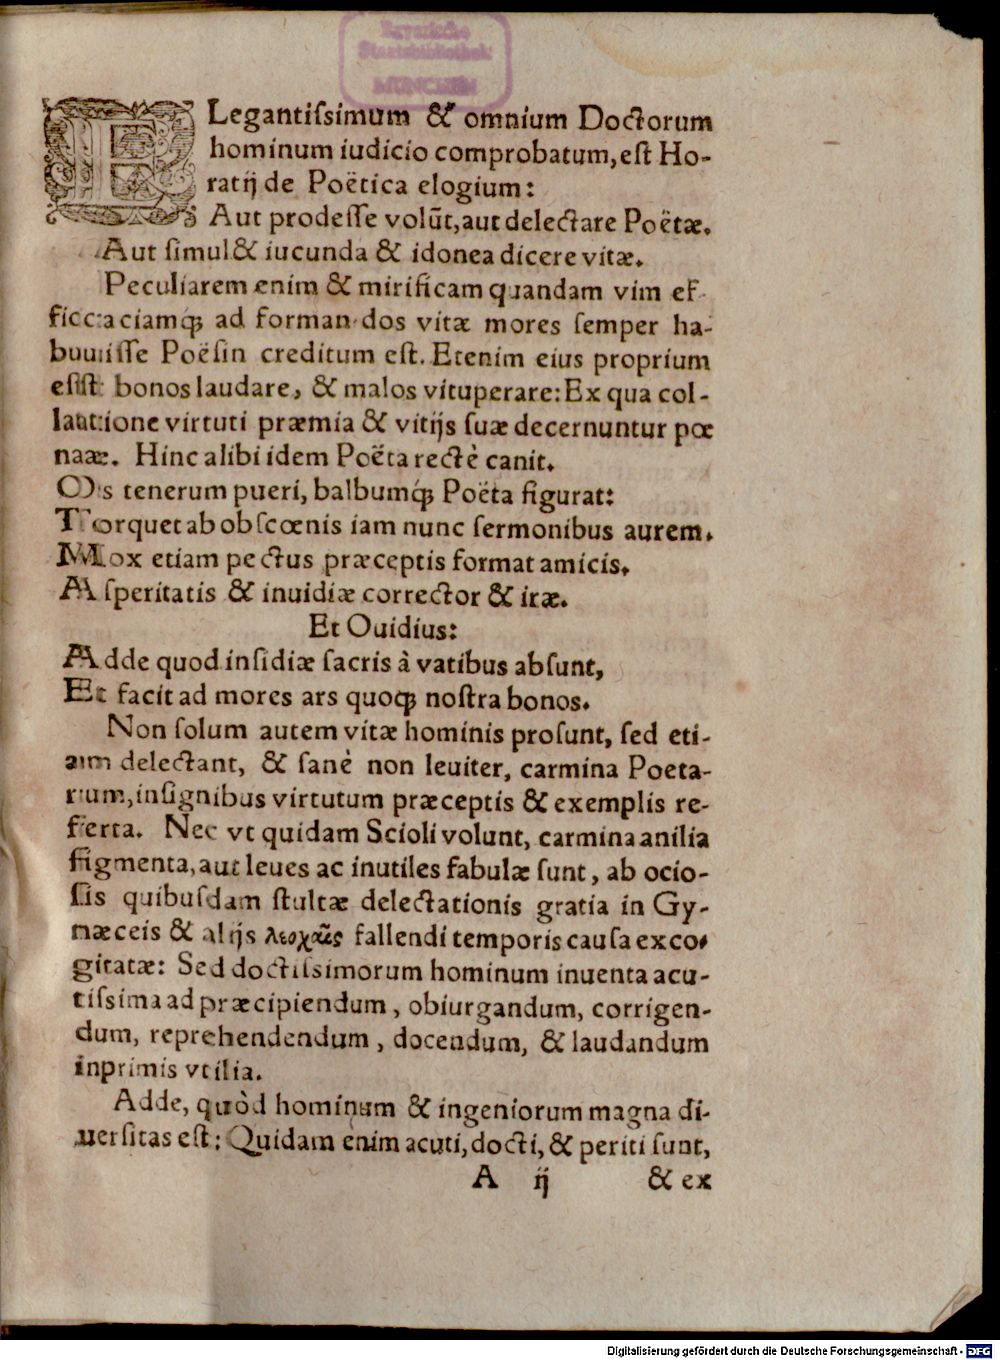 Bayerische
Staatsbibliothek
MÜNCHEN
ELegantiſsimum & omnium Doctorum
hominum iudicio comprobatum, eſt Ho-
ratij de Poëtica elogium:
Aut prodeſſe volūt, aut delectare Poëtæ.
Aut ſimul & iucunda & idonea dicere vitæ.
Peculiarem enim & mirificam quandam vim ef
ficaciamq́; ad formandos vitæ mores ſemper ha-
buiſſe Poëſin creditum eſt. Etenim eius proprium
eſt: bonos laudare, & malos vituperare: Ex qua col-
latione virtuti præmia & vitijs ſuæ decernuntur pœ
næ. Hinc alibi idem Poëta rectè canit.
Os tenerum pueri, balbumq́; Poëta figurat:
Torquet ab obſcœnis iam nunc ſermonibus aurem.
Mox etiam pectus præceptis format amicis.
Aſperitatis & inuidiæ corrector & iræ.
Et Ouidius:
Adde quod inſidiæ ſacris à vatibus abſunt,
Et facit ad mores ars quoq; noſtra bonos.
Non ſolum autem vitæ hominis proſunt, ſed eti-
am delectant, & ſanè non leuiter, carmina Poeta-
rum, inſignibus virtutum præceptis & exemplis re-
ferta. Nec vt quidam Scioli volunt, carmina anilia
figmenta, aut leues ac inutiles fabulæ ſunt, ab ocio-
ſis quibuſdam ſtultæ delectationis gratia in Gy-
næceis & alijs fallendi temporis cauſa exco-
gitatæ: Sed doctiſsimorum hominum inuenta acu-
tiſsima ad præcipiendum, obiurgandum, corrigen-
dum, reprehendendum, docendum, & laudandum
inprimis vtilia.
Adde, quòd hominum & ingeniorum magna di-
uerſitas eſt: Quidam enim acuti, docti, & periti ſunt,
A ij & ex
Digitalisierung gefördert durch die Deutsche Forschungsgemeinschaft - DFG